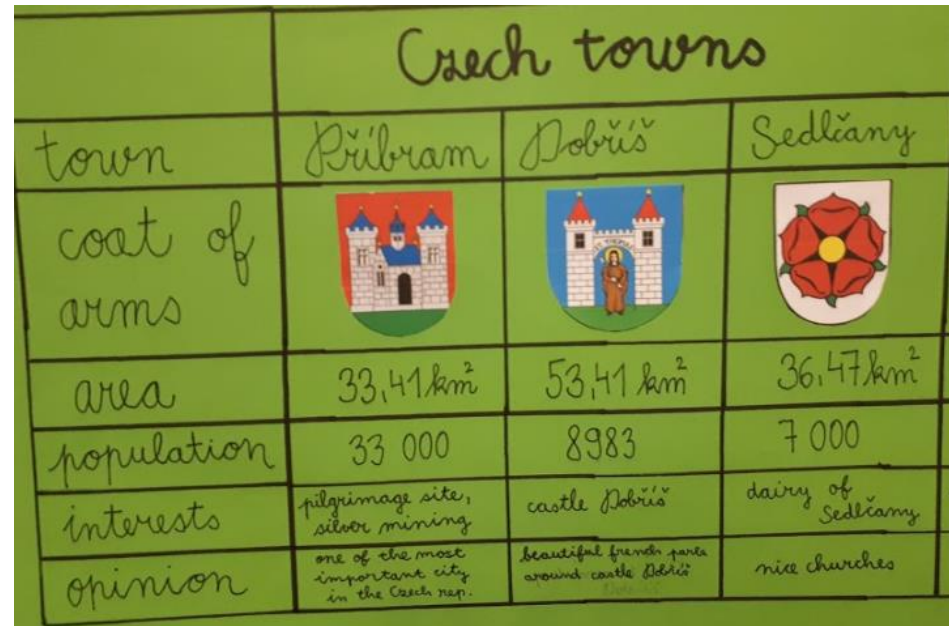 Czech towns
town Příbram Dobříš Sedlčany
coat of
arms
area 33,41 km² 53,41 km² 36,47 km²
population 33 000 8983 7 000
interests
pilgrimage site,
silver mining
castle Dobříš
dairy of
Sedlčany
opinion
one of the most
important city
in the Czech rep.
beautiful french park
around castle Dobříš
nice churches